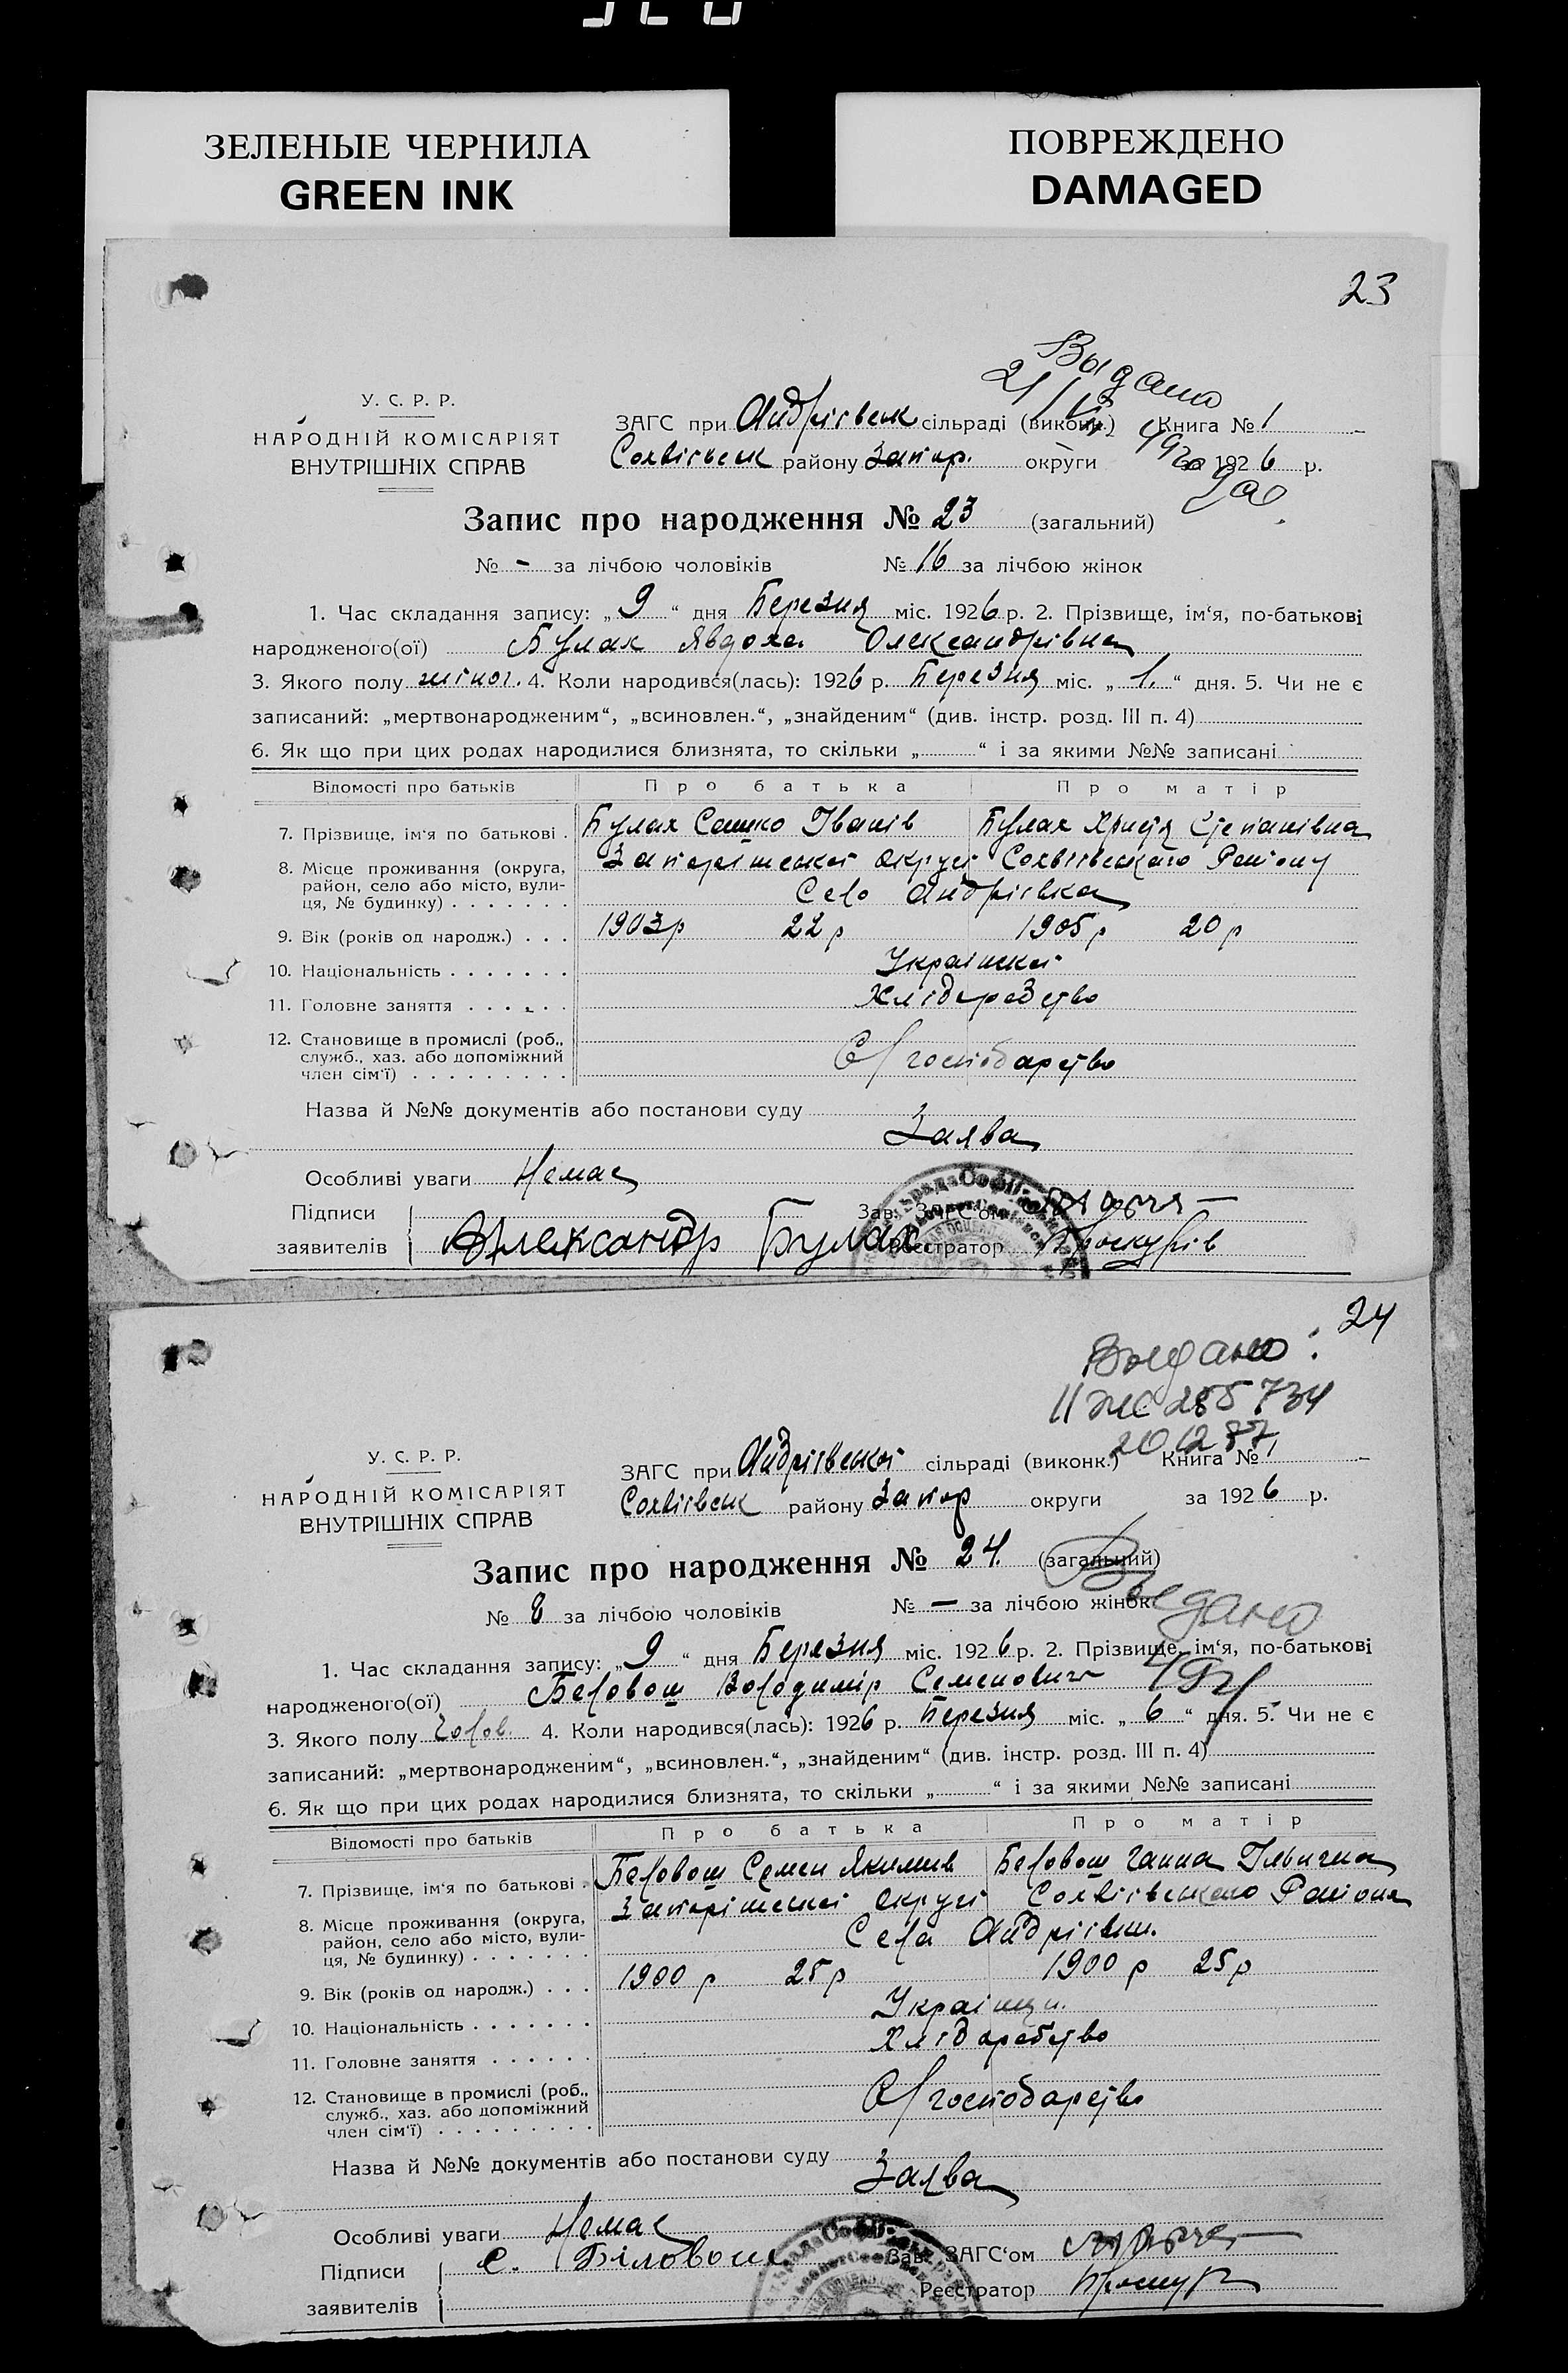 ЗЕЛЕНЫЕ ЧЕРНИЛА
GREEN INK
ПОВРЕЖДЕНО
DAMAGED
23
Выдано
У. С. Р. Р.
НАРОДНІЙ КОМІСАРІЯТ
ВНУТРІШНІХ СПРАВ
ЗАГС при Андріївськ сільраді (виконк.) Книга № 1
Софіївськ району Запор. округи за 1926 р.
Запис про народження № 23 (загальний)
№ - за лічбою чоловіків № 16 за лічбою жінок
1. Час складання запису: „9“ дня Березня міс. 1926 р. 2. Прізвище, ім‘я, по-батькові
народженого(ої) Булах Явдоха Олександрівна
3. Якого полу жіноч. 4. Коли народився(лась): 1926 р. Березня міс. „1.“ дня. 5. Чи не є
записаний: „мертвонародженим“, „всиновлен.“, „знайденим“ (див. інстр. розд. III п. 4)
6. Як що при цих родах народилися близнята, то скільки „ “ і за якими №№ записані
Відомості про батьків Про батька Про матір
7. Прізвище, ім‘я по батькові . Булах Сашко Іванів Булах Христя Степанівна
8. Місце проживання (округа, район, село або місто, вулиця, № будинку) Запоріжської округи Софіївського Району
Село Андріївка
9. Вік (років од народж.) . . . 1903р 22р 1905р 20р
10. Національність . . . . . . . Українська
11. Головне заняття . . . . . . Хліборобство
12. Становище в промислі (роб., служб., хаз. або допоміжний член сім‘ї) С/господарство
Назва й №№ документів або постанови суду
Заява
Особливі уваги Немає
Підписи
заявителів Александр Булах
Зав. ЗАГС‘ом
Реєстратор Проскурів
24
Выдано:
II ЖС 285734
У. С. Р. Р.
НАРОДНІЙ КОМІСАРІЯТ
ВНУТРІШНІХ СПРАВ
ЗАГС при Андріївської сільраді (виконк.) Книга № 1
Софіївськ району Запор округи за 1926 р.
Запис про народження № 24. (загальний)
Выдано
№ 8 за лічбою чоловіків № — за лічбою жінок
1. Час складання запису: „9“ дня Березня міс. 1926 р. 2. Прізвище, ім‘я, по-батькові
народженого(ої) Беловош Володимір Семенович
3. Якого полу Чолов. 4. Коли народився(лась): 1926 р. Березня міс. „6“ дня. 5. Чи не є
записаний: „мертвонародженим“, „всиновлен.“, „знайденим“ (див. інстр. розд. III п. 4)
6. Як що при цих родах народилися близнята, то скільки „ “ і за якими №№ записані
Відомості про батьків Про батька Про матір
7. Прізвище, ім‘я по батькові . Беловош Семен Якимів Беловош Ганна Ільїчна
8. Місце проживання (округа, район, село або місто, вулиця, № будинку) Запоріжської округи Софіївського Району
Села Андріївки.
9. Вік (років од народж.) . . . 1900 р 25р 1900 р 25р
10. Національність . . . . . . . Українці.
11. Головне заняття . . . . . . Хліборобство
12. Становище в промислі (роб., служб., хаз. або допоміжний член сім‘ї) С/господарство
Назва й №№ документів або постанови суду
Заява
Особливі уваги Немає
Підписи С. Біловош
заявителів
Зав. ЗАГС‘ом
Реєстратор